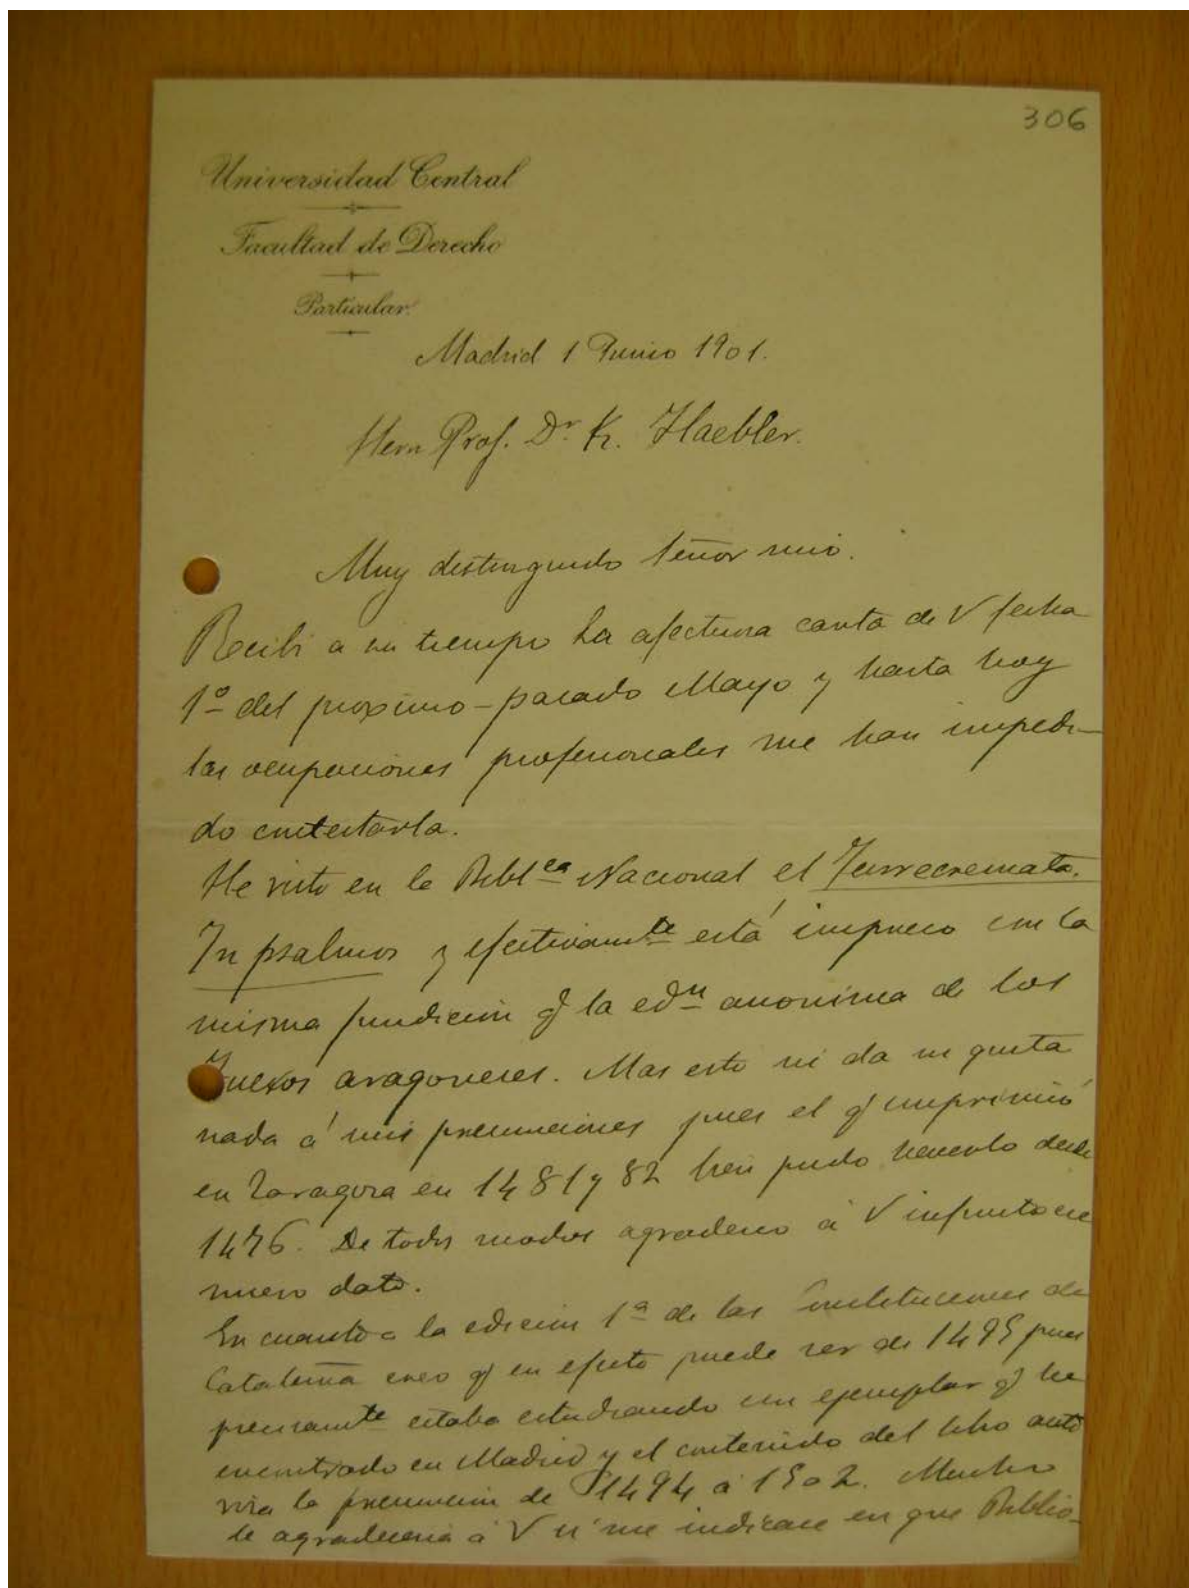 306
Universidad Central
Facultad de Derecho
Particular.
Madrid 1 Junio 1901.
Herrn Prof. Dr. K. Haebler.
Muy distinguido señor mio.
Recibi a su tiempo la afectuosa carta de V fecha
1º del proximo-pasado Mayo y hasta hoy
las ocupaciones profesionales me han impedi-
do contestarla.
He visto en la Blblca Nacional el Turrecremata.
In psalmos y efectivamte está impreso con la
misma fundicion q la edn anonima de los
Fueros aragoneses. Mas esto ni da ni quita
nada á mis presunciones pues el q imprimió
en Zaragoza en 1481 y 82 bien pudo hacerlo desde
1476. De todos modos agradezco á V infinito ese
nuevo dato.
En cuanto a la edicion 1ª de las Constituciones de
Cataluña creo q en efecto puede ser de 1495 pues
precisamte estaba estudiando un ejemplar q he
encontrado en Madrid y el contenido del libro auto
riza la presuncion de 1494 á 1502. Mucho
le agradeceria á V si me indicase en que Biblio-